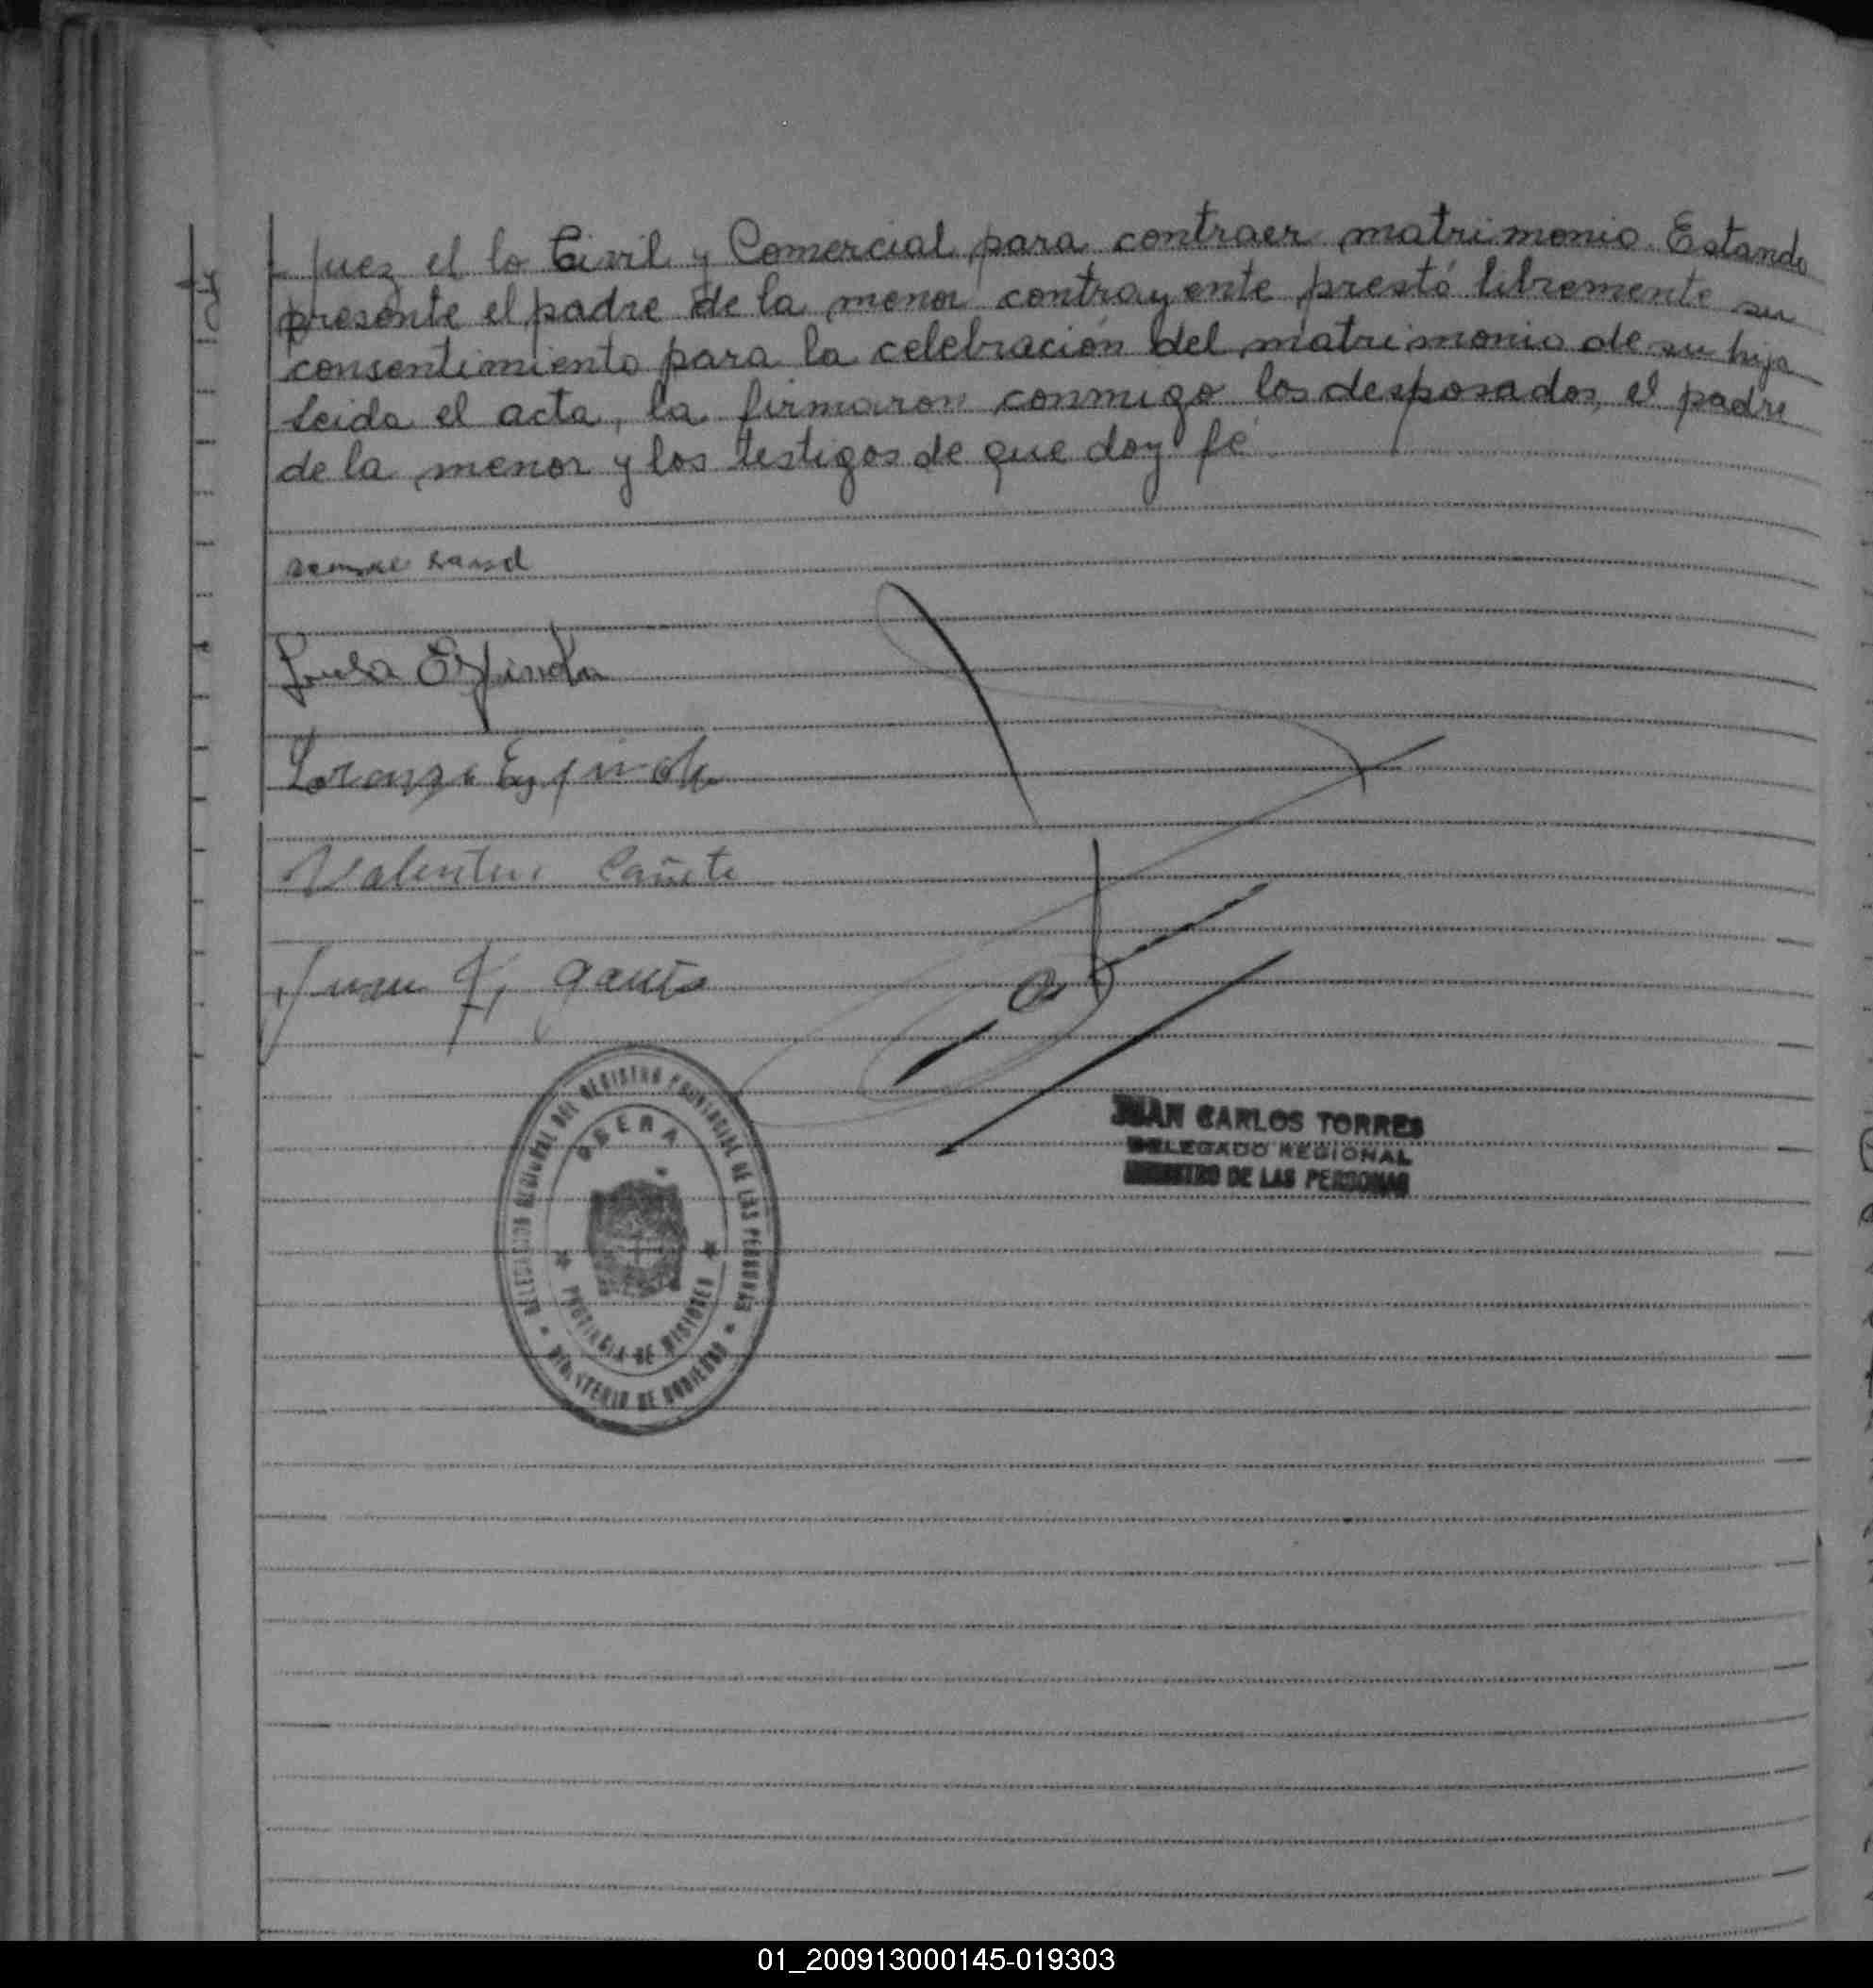 Juez el lo Civil y Comercial para contraer matrimonio. Estando
presente el padre de la menor contrayente prestó libremente su
consentimiento para la celebración del matrimonio de su hija
Leida el acta, la firmaron conmigo los desposados, el padre
de la menor y los testigos de que doy fé
Espinola
Lorenzo Espinola
Valentin Cañete
Juan
DELEGACION REGIONAL DEL REGISTRO PROVINCIAL DE LAS PERSONAS
OBERA
PROVINCIA DE MISIONES
MINISTERIO DE GOBIERNO
JUAN CARLOS TORRES
DELEGADO REGIONAL
REGISTRO DE LAS PERSONAS
01_200913000145-019303